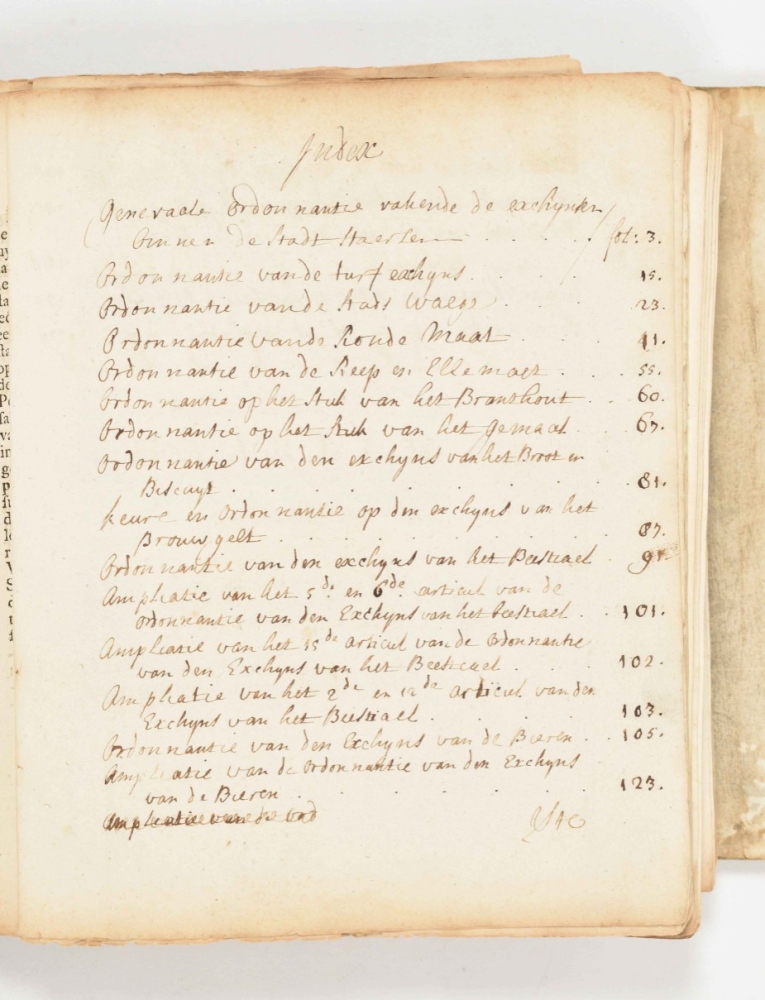 Index
Generaale Ordonnantie rakende de exchynsen
binnen de Stadt Haerlem . . . . fol: 3.
Ordonnantie vande turf exchyns . . . 15.
Ordonnantie vande stads Waege . . . 23.
Ordonnantie vande Ronde Maat . . . 41.
Ordonnantie van de Reep en Ellemaet . . . 55.
Ordonnantie op het stuk van het Branthout . . 60.
Ordonnantie op het stuk van het gemaal . . 67.
Ordonnantie van den exchyns van het Broot en
Biscuyt . . . . . . . . 81.
keure en Ordonnantie op den exchyns van het
Brouw gelt . . . . . . . . 87.
Ordonnantie van den exchyns van het Beestiael . 91.
Ampliatie van het 5de. en 6de. articul van de
ordonnantie van den Exchyns van het beestiael . . 101.
Ampliatie van het 35de articul van de Ordonnantie
van den Exchyns van het Beestiael . . . 102.
Ampliatie van het 2de en 12de articul van den
Exchyns van het Beestiael . . . . . 103.
Ordonnantie van den Exchyns van de Bieren . . 105.
Ampliatie van de Ordonnantie van den Exchyns
van de Bieren . . . . . . . 123.
Ampliatie van de ord